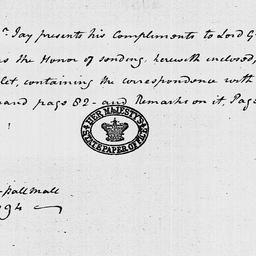 r. Jay presents his Compliments to Lord G
s the Honor of sending, herewith enclosed,
let, containing the correspondence with
and page 82 - and Remarks on it, Page
HER MAJESTY'S
STATE PAPER OFFICE
Pall Mall
94